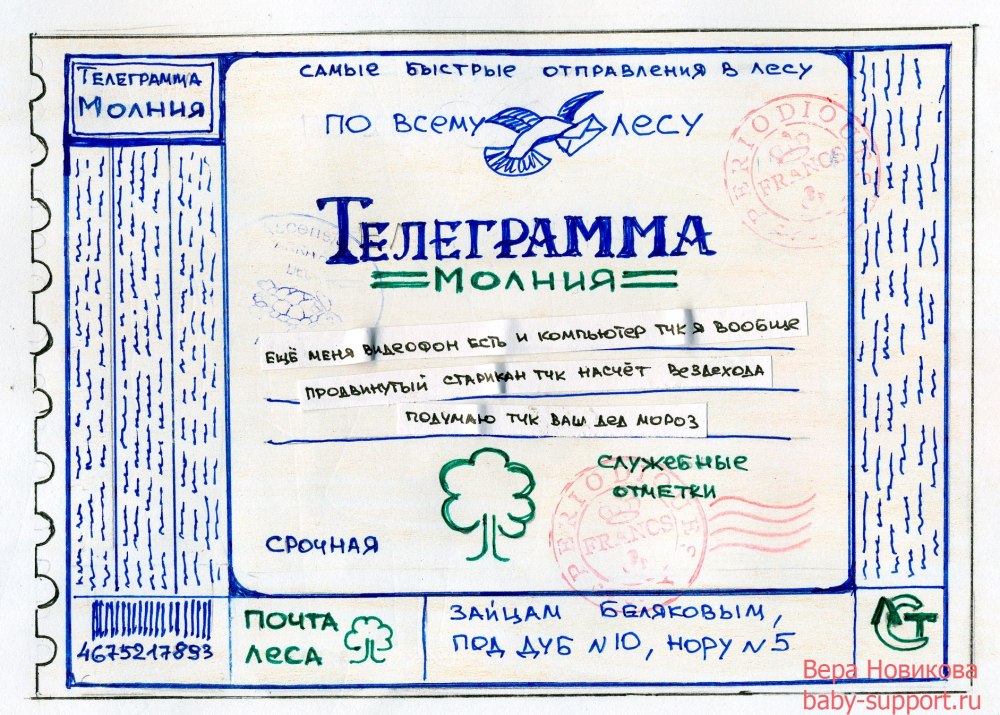 ТЕЛЕГРАММА
МОЛНИЯ
САМЫЕ БЫСТРЫЕ ОТПРАВЛЕНИЯ В ЛЕСУ
ПО ВСЕМУ ЛЕСУ
ТЕЛЕГРАММА
МОЛНИЯ
ЕЩЁ МЕНЯ ВИДЕОФОН ЕСТЬ И КОМПЬЮТЕР ТЧК Я ВООБЩЕ
ПРОДВИНУТЫЙ СТАРИКАН ТЧК НАСЧЁТ ВЕЗДЕХОДА
ПОДУМАЮ ТЧК ВАШ ДЕД МОРОЗ
СЛУЖЕБНЫЕ
ОТМЕТКИ
СРОЧНАЯ
PERIODIQUES
FRANCS
PERIODIQUES
FRANCS
4675217893
ПОЧТА
ЛЕСА
ЗАЙЦАМ БЕЛЯКОВЫМ,
ПОД ДУБ N10, НОРУ N5
ЛСТ
Вера Новикова
baby-support.ru